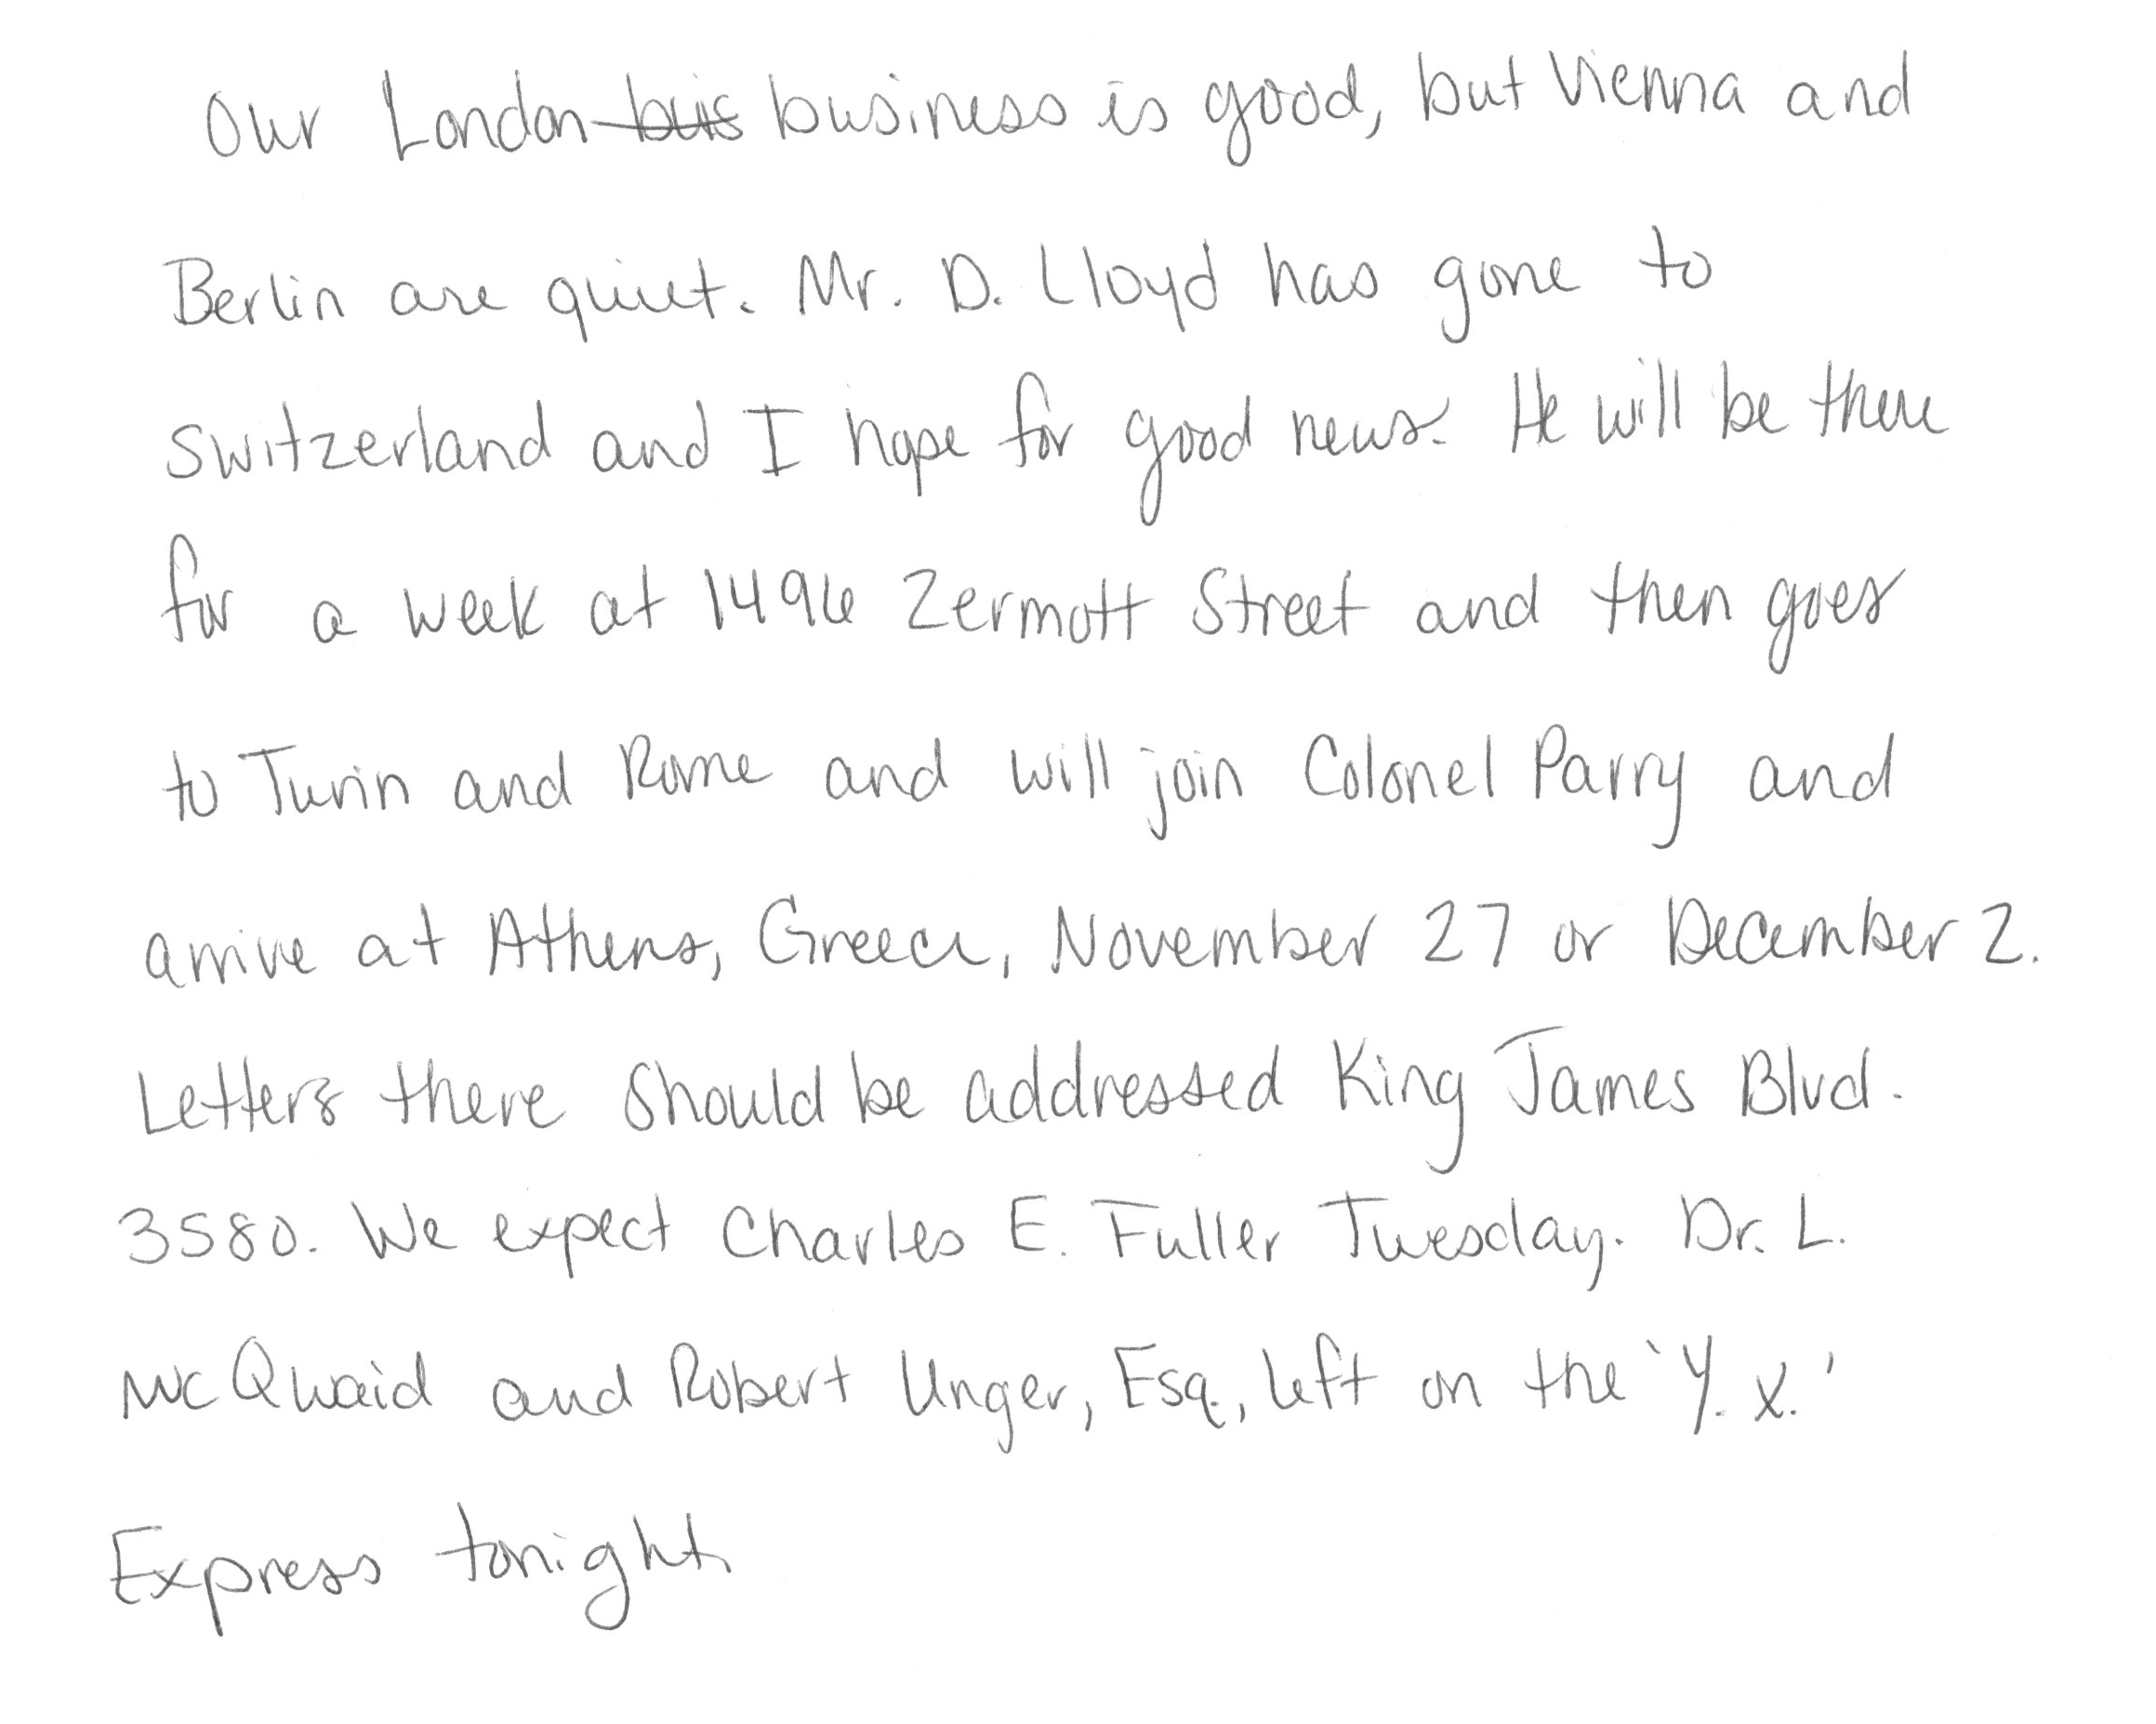 Our London buis business is good, but Vienna and
Berlin are quiet. Mr. D. Lloyd has gone to
Switzerland and I hope for good news. He will be there
for a week at 1496 Zermott Street and then goes
to Turin and Rome and will join Colonel Parry and
arrive at Athens, Greece, November 27 or December 2.
Letters there should be addressed King James Blvd.
3580. We expect Charles E. Fuller Tuesday. Dr. L.
McQuaid and Robert Unger, Esq., left on the 'Y.X.'
Express tonight.